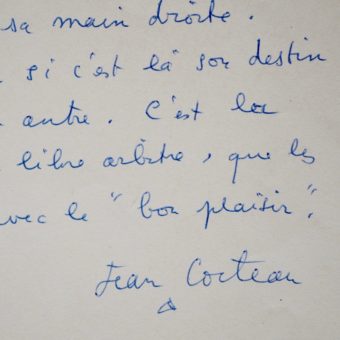 sa main droite.
si c'est là son destin
autre. C'est la
libre arbitre, que les
avec le "bon plaisir".
Jean Cocteau